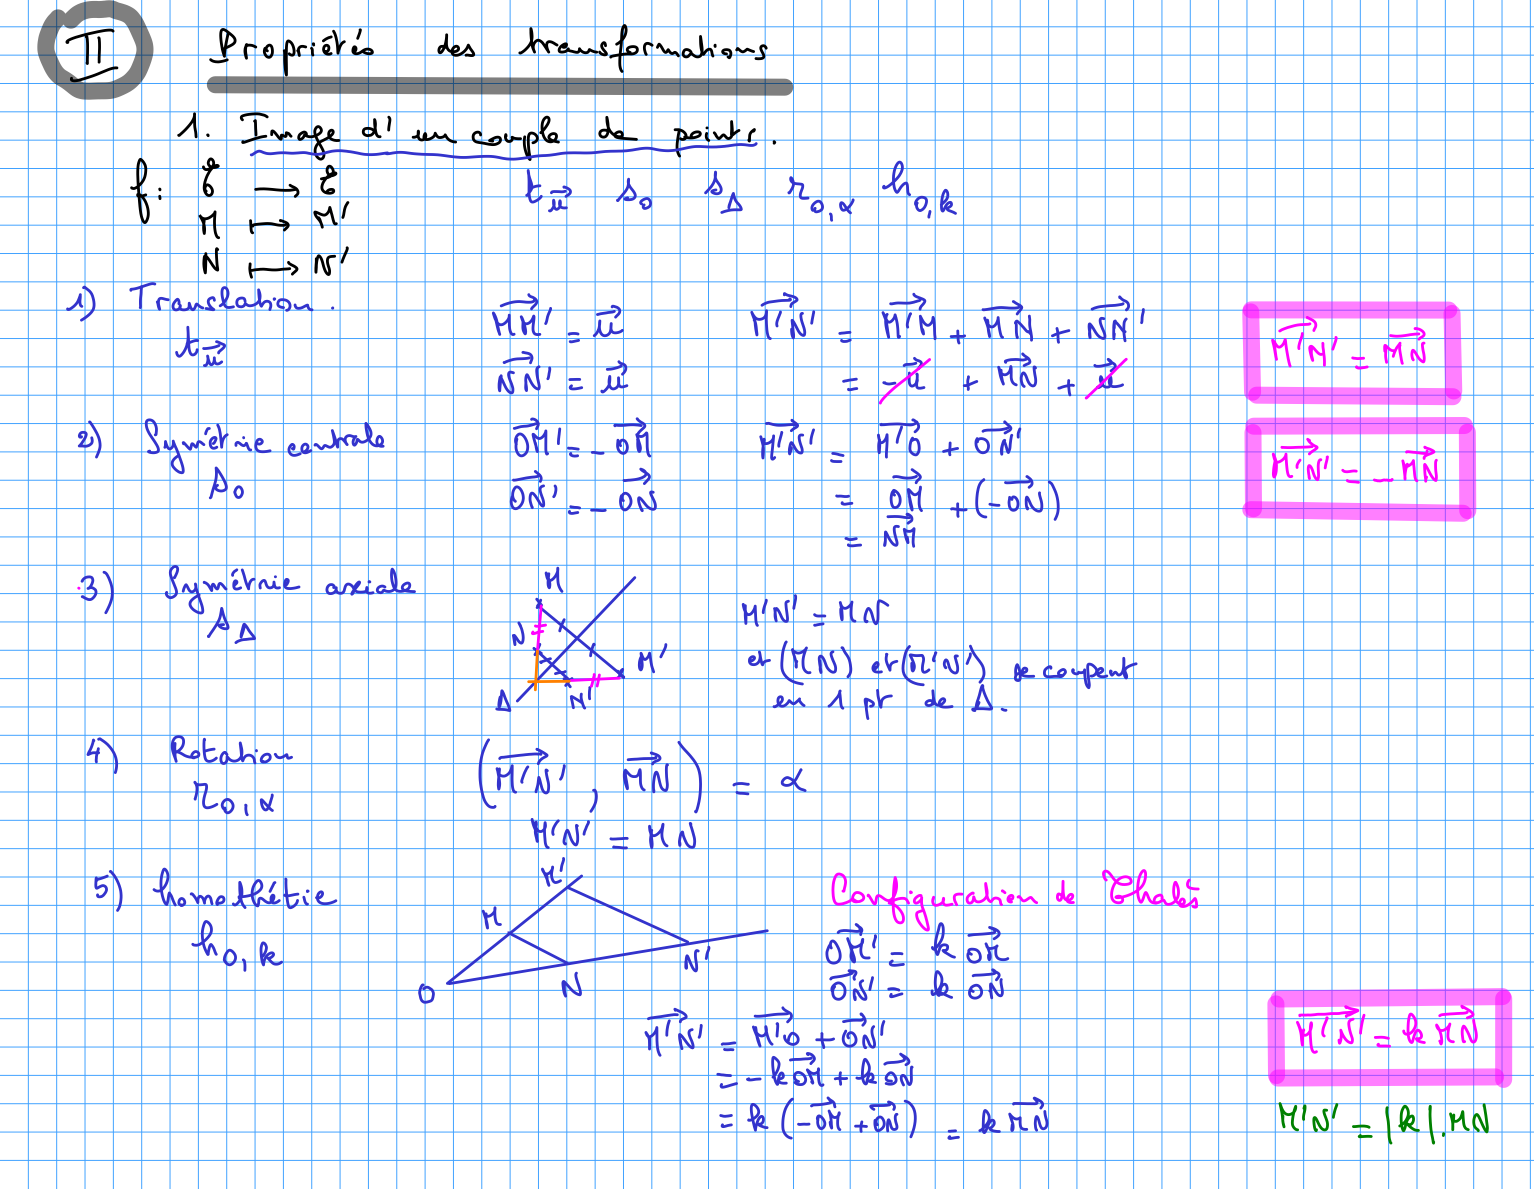 II Propriétés des transformations
1. Image d'un couple de points.
f: ℰ ⟶ ℰ
M ⟼ M'
N ⟼ N'
t_u⃗ s_O s_Δ r_O,α h_O,k
1) Translation.
t_u⃗
MM'⃗ = u⃗
NN'⃗ = u⃗
M'N'⃗ = M'M⃗ + MN⃗ + NN'⃗
= -u⃗ + MN⃗ + u⃗
M'N'⃗ = MN⃗
2) Symétrie centrale
s_O
OM'⃗ = - OM⃗
ON'⃗ = - ON⃗
M'N'⃗ = M'O⃗ + ON'⃗
= OM⃗ + (-ON⃗)
= NM⃗
M'N'⃗ = - MN⃗
3) Symétrie axiale
s_Δ
M
N
M'
Δ
N'
M'N' = MN
et (MN) et (M'N') se coupent
en 1 pt de Δ.
4) Rotation
r_O,α
(M'N'⃗, MN⃗) = α
M'N' = MN
5) homothétie
h_O,k
M'
M
O
N
N'
Configuration de Thalès
OM'⃗ = k OM⃗
ON'⃗ = k ON⃗
M'N'⃗ = M'O⃗ + ON'⃗
= - k OM⃗ + k ON⃗
= k (-OM⃗ + ON⃗) = k MN⃗
M'N'⃗ = k MN⃗
M'N' = |k|.MN